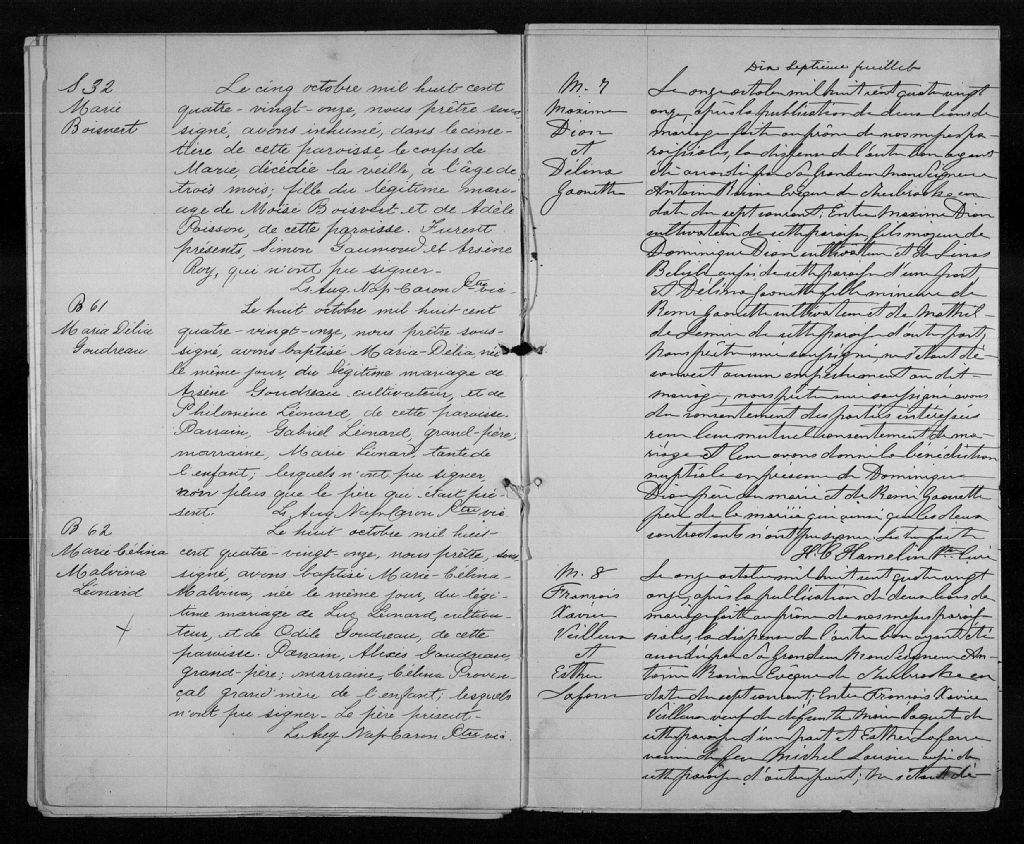 S 32
Marie
Boisvert
Le cinq octobre mil huit cent
quatre-vingt-onze, nous prêtre sous-
signé, avons inhumé, dans le cime-
tière de cette paroisse, le corps de
Marie, décédée la veille, à l'âge de
trois mois; fille du légitime mari-
age de Moïse Boisvert et de Adèle
Poisson, de cette paroisse. Furent
présents, Simon Gaumond et Arsène
Roy, qui n'ont pu signer-
Ls Aug. Nap. Caron Ptre vic-
B 61
Maria Délia
Goudreau
Le huit octobre mil huit cent
quatre-vingt-onze, nous prêtre sous-
signé, avons baptisé Maria-Délia, née
le même jour, du légitime mariage de
Arsène Goudreau cultivateur, et de
Philomène Léonard, de cette paroisse.
Parrain, Gabriel Léonard, grand-père;
marraine, Marie Léonard, tante de
l'enfant; lesquels n'ont pu signer
non plus que le père qui était pré-
sent. Ls Aug Nap Caron Ptre vic
B 62
Marie Célina
Malvina
Léonard
Le huit octobre mil huit
cent quatre-vingt onze, nous prêtre, sous
signé, avons baptisé Marie-Célina-
Malvina, née le même jour, du légi-
time mariage de Luc Léonard, cultiva-
teur, et de Odile Goudreau, de cette
paroisse. Parrain, Alexis Goudreau,
grand-père; marraine, Célina Proven-
çal grand'mère de l'enfant; lesquels
n'ont pu signer- Le père présent-
Ls Aug Nap Caron Ptre vic.
Dix Septième feuillet
M. 7
Maxime
Dion
et
Délina
Gaouette
Le onze octobre mil huit cent quatre vingt
onze, après la publication de deux bans de
mariage faite au prône de nos messes pa-
roissiales, la dispense de l'autre ban ayant
été accordée par Sa Grandeur Monseigneur
Antoine Racine Evêque de Sherbrooke en
date du sept courant; Entre Maxime Dion
cultivateur de cette paroisse fils majeur de
Dominique Dion cultivateur et de
aussi de cette paroisse d'une part
et Délina Gaouette fille mineure de
Rémi Gaouette cultivateur et de Mathil-
de Lemire de cette paroisse d'autre part;
Nous prêtre curé soussigné, ne s'étant dé-
couvert aucun empêchement au dit
mariage, nous prêtre curé soussigné avons
du consentement des parties intéressées
reçu leur mutuel consentement de ma-
riage et leur avons donné la bénédiction
nuptiale en présence de Dominique
Dion père du marié et de Rémi Gaouette
père de la mariée qui ainsi que les deux
contractants n'ont pu signer. Lecture faite
H. C. Hamelin Ptre Curé
M. 8
François
Xavier
Veilleux
et
Esther
Le onze octobre mil huit cent quatre vingt
onze, après la publication de deux bans de
mariage faite au prône de nos messes parois-
siales, la dispense de l'autre ban ayant été
accordée par Sa Grandeur Monseigneur An-
toine Racine Evêque de Sherbrooke en
date du sept courant; Entre François Xavier
Veilleux veuf de défunte Marie Paquet de
cette paroisse d'une part et Esther
veuve de feu Michel aussi de
cette paroisse d'autre part; Ne s'étant dé-